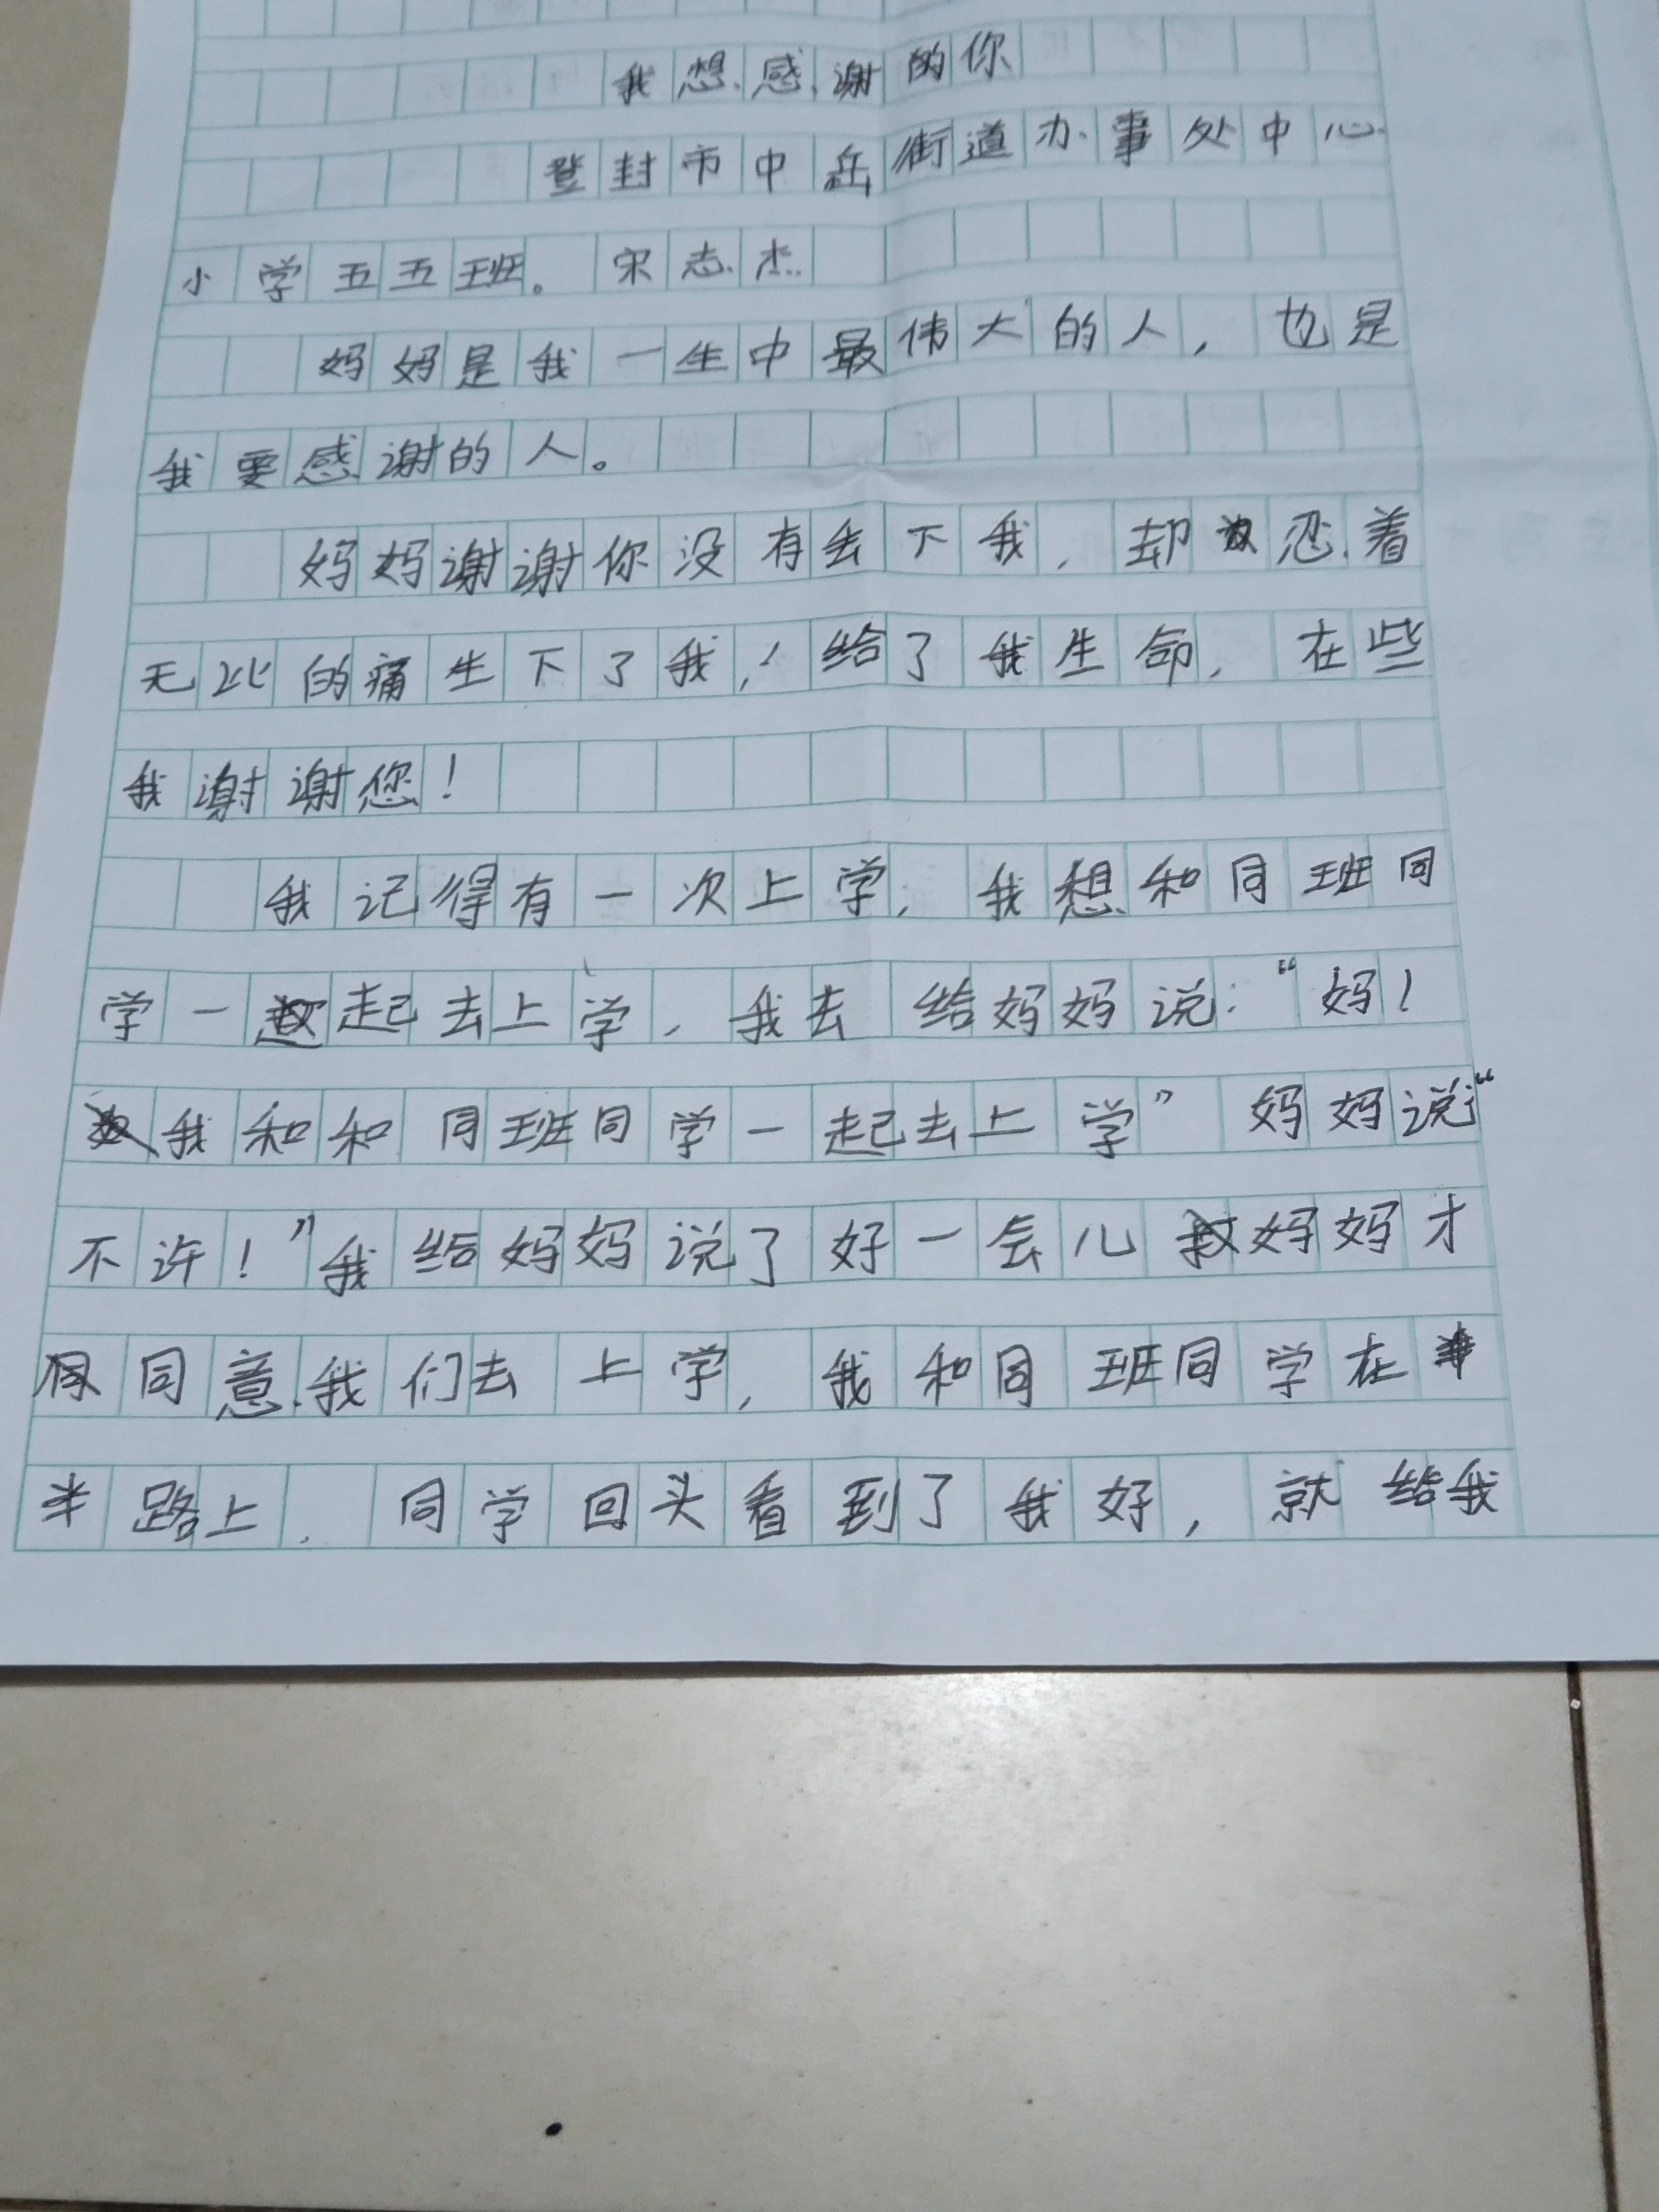 我想感谢的你
登封市中岳街道办事处中心
小学五五班。宋志杰
妈妈是我一生中最伟大的人，也是
我要感谢的人。
妈妈谢谢你没有丢下我，却忍着
无比的痛生下了我，！给了我生命，在些
我谢谢您！
我记得有一次上学，我想和同班同
学一起去上学，我去给妈妈说：“妈！
我和和同班同学一起去上学”妈妈说：“
不许！”我给妈妈说了好一会儿妈妈才
同意我们去上学，我和同班同学在
半路上，同学回头看到了我好，就给我